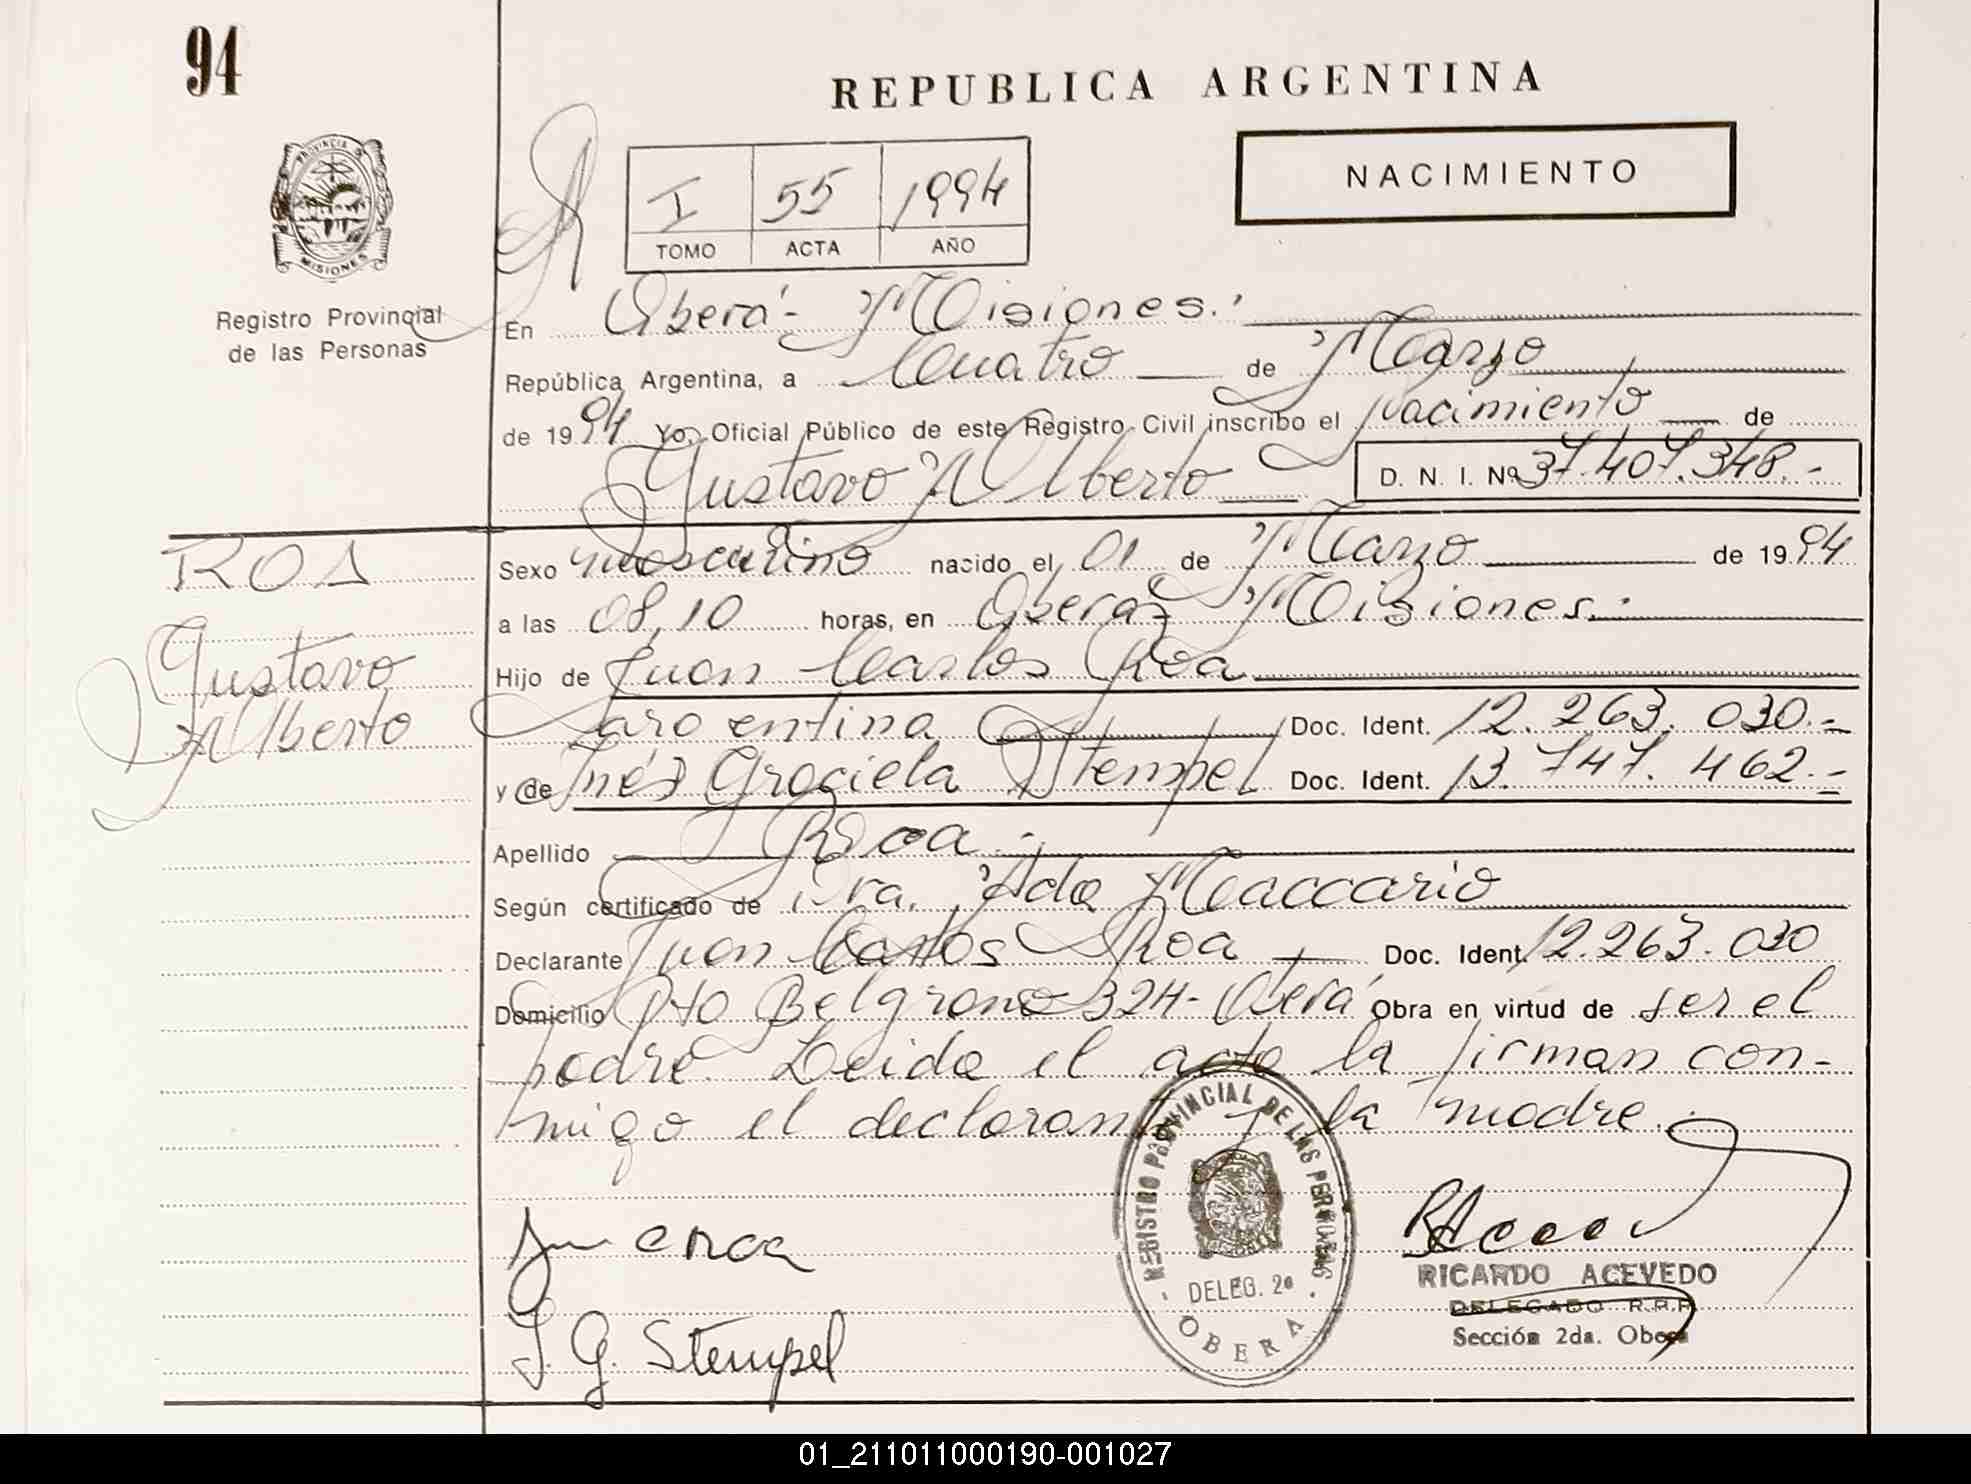 94
REPUBLICA ARGENTINA
PROVINCIA DE MISIONES
I 55 1994
TOMO ACTA AÑO
NACIMIENTO
Registro Provincial
de las Personas
En Oberá - Misiones.
República Argentina, a Cuatro de Marzo
de 1994 Yo, Oficial Público de este Registro Civil inscribo el nacimiento de
Gustavo Alberto D. N. I. Nº 37.407.348.-
ROA
Gustavo
Alberto
Sexo masculino nacido el 01 de Marzo de 1994
a las 08,10 horas, en Oberá Misiones.
Hijo de Juan Carlos Roa
argentina Doc. Ident. 12.263.030.-
y de Inés Graciela Stempel Doc. Ident. 13.747.462.-
Apellido Roa.-
Según certificado de Dra. Ada Maccario
Declarante Juan Carlos Roa Doc. Ident. 12.263.030
Domicilio Pto Belgrano 324- Oberá Obra en virtud de ser el
padre. Leida el acta la firman con-
migo el declarante y la madre.
REGISTRO PROVINCIAL DE LAS PERSONAS
DELEG. 2a
OBERA
J. G. Stempel
RICARDO ACEVEDO
DELEGADO R.P.P.
Sección 2da. Obera
01_211011000190-001027